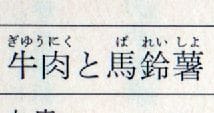 ぎゅうにく ばれいしよ
牛肉と馬鈴薯